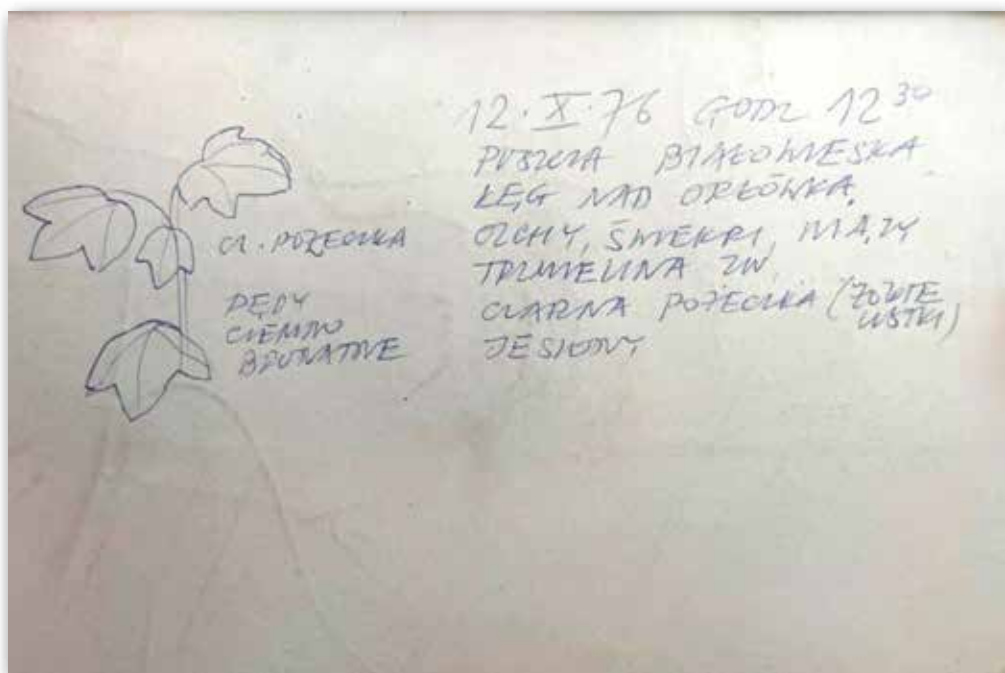 12.X.76 GODZ 12³⁰
PUSZCZA BIAŁOWIESKA
ŁĘG NAD ORŁÓWKĄ,
OLCHY, ŚWIERKI,
TRZMIELINA ZW.
CZARNA POŻECZKA (ŻÓŁTE LISTKI)
JESIONY
CZ. POŻECZKA
PĘDY
CIEMNO
BRUNATNE